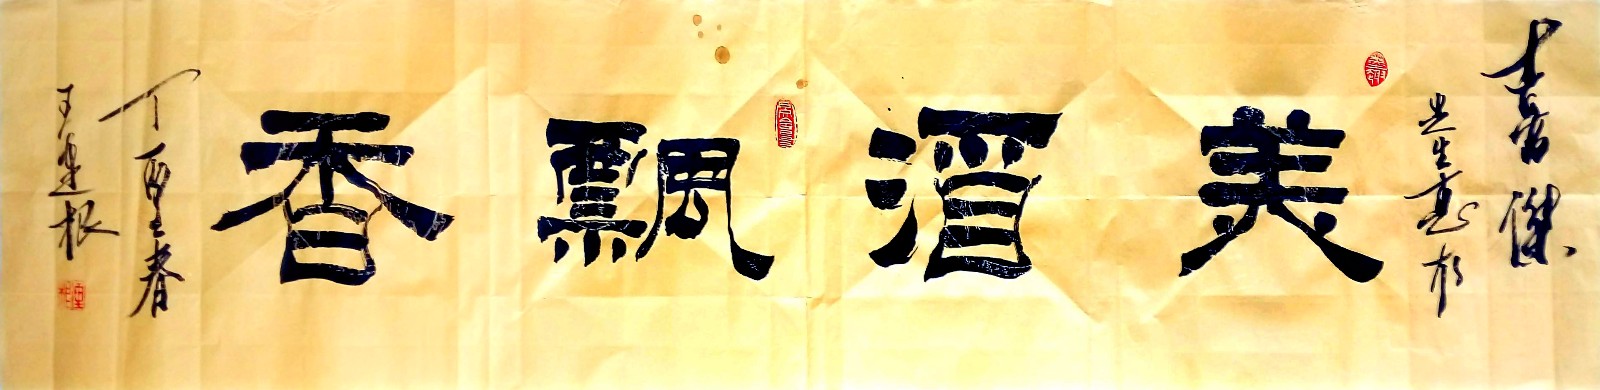 傑
先生惠存
美酒飄香
丁酉之春
王建根